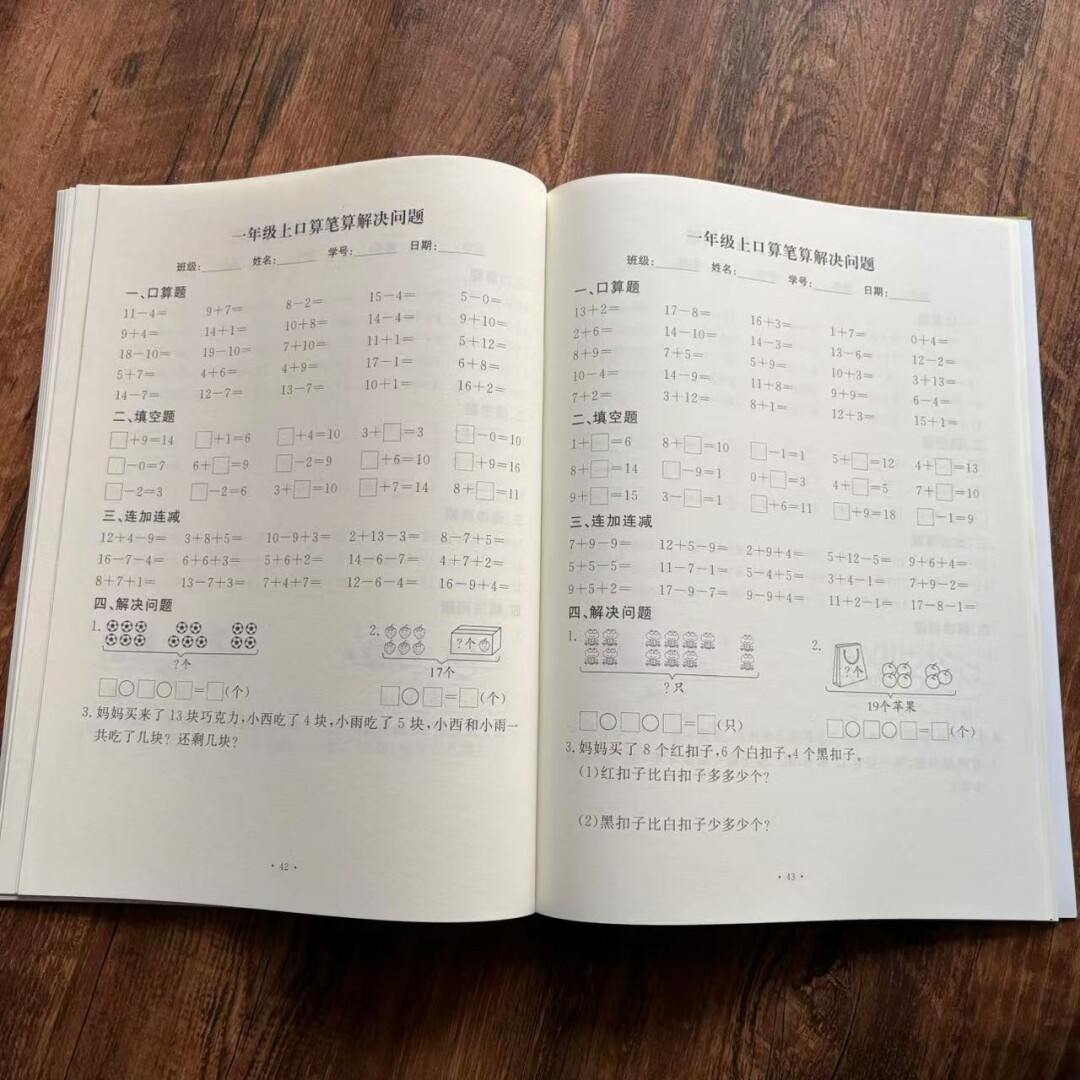 一年级上口算笔算解决问题
班级: 姓名: 学号: 日期:
一、口算题
11－4＝ 9＋7＝ 8－2＝ 15－4＝ 5－0＝
9＋4＝ 14＋1＝ 10＋8＝ 14－4＝ 9＋10＝
18－10＝ 19－10＝ 7＋10＝ 11＋1＝ 5＋12＝
5＋7＝ 4＋6＝ 4＋9＝ 17－1＝ 6＋8＝
14－7＝ 12－7＝ 13－7＝ 10＋1＝ 16＋2＝
二、填空题
□＋9＝14 □＋1＝6 □＋4＝10 3＋□＝3 □－0＝10
□－0＝7 6＋□＝9 □－2＝9 □＋6＝10 □＋9＝16
□－2＝3 □－2＝6 3＋□＝10 □＋7＝14 8＋□＝11
三、连加连减
12＋4－9＝ 3＋8＋5＝ 10－9＋3＝ 2＋13－3＝ 8－7＋5＝
16－7－4＝ 6＋6＋3＝ 5＋6＋2＝ 14－6－7＝ 4＋7＋2＝
8＋7＋1＝ 13－7＋3＝ 7＋4＋7＝ 12－6－4＝ 16－9＋4＝
四、解决问题
1. 2.
?个
?个 17个
□○□○□＝□(个) □○□＝□(个)
3. 妈妈买来了 13 块巧克力,小西吃了 4 块,小雨吃了 5 块,小西和小雨一
共吃了几块? 还剩几块?
· 42 ·
一年级上口算笔算解决问题
班级: 姓名: 学号: 日期:
一、口算题
13＋2＝ 17－8＝ 16＋3＝ 1＋7＝ 0＋4＝
2＋6＝ 14－10＝ 14－3＝ 13－6＝ 12－2＝
8＋9＝ 7＋5＝ 5＋9＝ 10＋3＝ 3＋13＝
10－4＝ 14－9＝ 11＋8＝ 9＋9＝ 6－4＝
7＋2＝ 3＋12＝ 8＋1＝ 12＋3＝ 15＋1＝
二、填空题
1＋□＝6 8＋□＝10 □－1＝1 5＋□＝12 4＋□＝13
8＋□＝14 □－9＝1 0＋□＝3 4＋□＝5 7＋□＝10
9＋□＝15 3－□＝1 □＋6＝11 □＋9＝18 □－1＝9
三、连加连减
7＋9－9＝ 12＋5－9＝ 2＋9＋4＝ 5＋12－5＝ 9＋6＋4＝
5＋5－5＝ 11－7－1＝ 5－4＋5＝ 3＋4－1＝ 7＋9－2＝
9＋5＋2＝ 17－9－7＝ 9－9＋4＝ 11＋2－1＝ 17－8－1＝
四、解决问题
1. 2.
?个
?只 19个苹果
□○□○□＝□(只) □○□○□＝□(个)
3. 妈妈买了 8 个红扣子,6 个白扣子,4 个黑扣子。
(1)红扣子比白扣子多多少个?
(2)黑扣子比白扣子少多少个?
· 43 ·